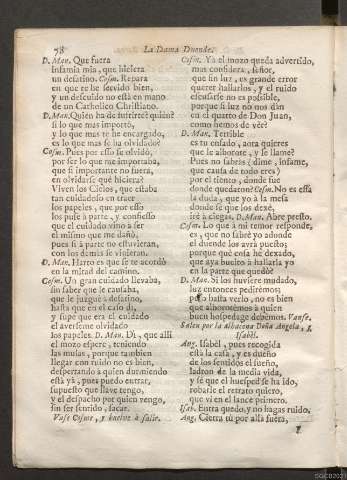 78
La Dama Duende.
D. Man. Que fuera
infamia mia, que hiciera
un desatino. Cosm. Repara
en que te he servido bien,
y un descuido no está en mano
de un Catholico Christiano.
D. Man. Quièn ha de sufrirte? quièn?
si lo que mas importò,
y lo que mas te he encargado,
es lo que se ha olvidado?
Cosm. Pues por esso se olvidò,
por ser lo que me importaba,
que si importante no fuera,
en olvidarse què hiciera?
Viven los Cielos, que estaba
tan cuidadoso en traer
los papeles, que por esso
los puse à parte, y confiesso
que el cuidado vino à ser
el mismo que me dañò,
pues si à parte no estuvieran,
con los demàs se vinieran.
D. Man. Harto es que se te acordò
en la mitad del camino.
Cosm. Un gran cuidado llevaba,
sin saber que le causaba,
que le juzguè à desatino,
hasta que en el caso di,
y supe que era el cuidado
el averseme olvidado
los papeles. D. Man. Di, que alli
el mozo espere, teniendo
las mulas, porque tambien
llegar con ruido no es bien,
despertando à quien durmiendo
està yà, pues puedo entrar,
supuesto que llave tengo,
y el despacho por quien vengo,
sin ser sentido, sacar.
Vase Cosme, y buelve à salir.
Cosm. Yà el mozo queda advertido,
mas considera, señor,
que sin luz, es grande error
querer hallarlos, y el ruido
escusarse no es possible,
porque si luz no nos dàn
en el quarto de Don Juan,
còmo hemos de vèr?
D. Man. Terrible
es tu enfado, aora quieres
que le alborote, y le llame?
Pues no sabràs (dime, infame,
que causa de todo eres)
por el tiento, donde fue
donde quedaron? Cosm. No es essa
la duda, que yo à la mesa
donde sè que los dexè,
irè à ciegas. D. Man. Abre presto.
Cosm. Lo que à mi temor responde,
es, que no sabrè yo adonde
el duende los avrà puesto;
porque què cosa he dexado,
que aya buelto à hallarla yo
en la parte que quedò?
D. Man. Si los huviere mudado,
luz entonces pedirèmos;
pero hasta verlo, no es bien
que alborotèmos à quien
buen hospedage debemos. Vanse.
Salen por la alhacena Doña Angela, y
Isabèl.
Ang. Isabèl, pues recogida
està la casa, y es dueño
de los sentidos el sueño,
ladron de la media vida,
y sè que el huesped se ha ido,
robarle el retrato quiero,
que vi en el lance primero.
Isab. Entra quedo, y no hagas ruido.
Ang. Cierra tù por allà fuera,
y